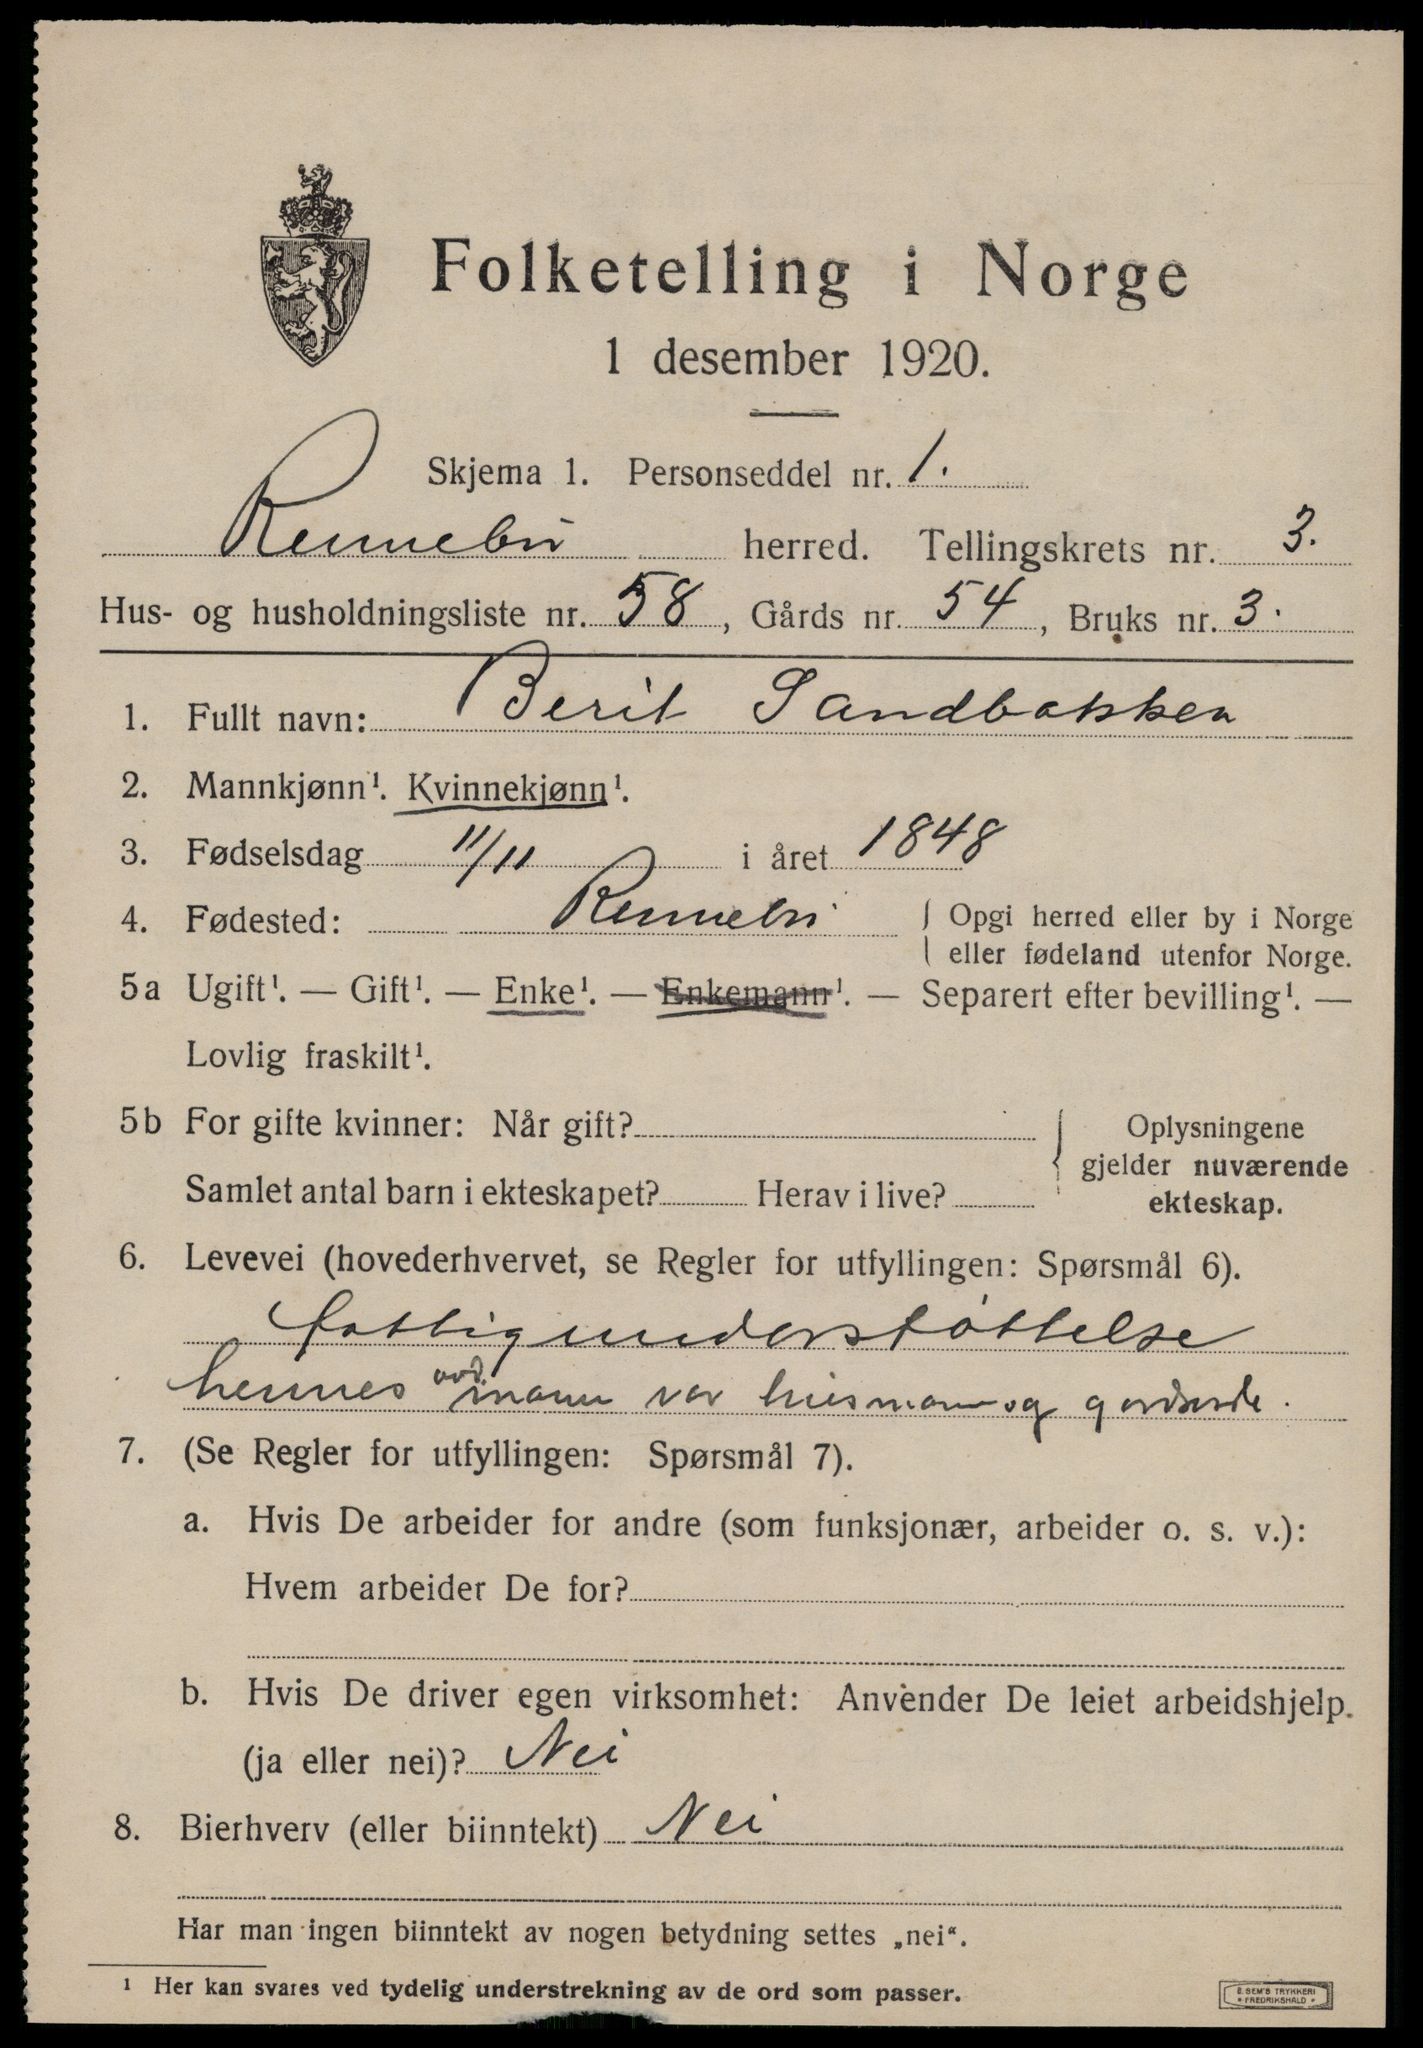 Folketelling i Norge
1 desember 1920.
Skjema 1. Personseddel nr. 1.
Rennebu herred. Tellingskrets nr. 3.
Hus- og husholdningsliste nr. 58, Gårds nr. 54, Bruks nr. 3.
1. Fullt navn: Berit Sandbakken
2. Mannkjønn¹. Kvinnekjønn¹.
3. Fødselsdag 11/11 i året 1848
4. Fødested: Rennebu { Opgi herred eller by i Norge
eller fødeland utenfor Norge.
5a Ugift¹. — Gift¹. — Enke¹. — Enkemann¹. — Separert efter bevilling¹. —
Lovlig fraskilt¹.
5b For gifte kvinner: Når gift?
Samlet antal barn i ekteskapet? Herav i live?
Oplysningene
gjelder nuværende
ekteskap.
6. Levevei (hovederhvervet, se Regler for utfyllingen: Spørsmål 6).
fattigunderstøttelse
hennes avd. mann var husmann og
7. (Se Regler for utfyllingen: Spørsmål 7).
a. Hvis De arbeider for andre (som funksjonær, arbeider o. s. v.):
Hvem arbeider De for?
b. Hvis De driver egen virksomhet: Anvender De leiet arbeidshjelp
(ja eller nei)? Nei
8. Bierhverv (eller biinntekt) Nei
Har man ingen biinntekt av nogen betydning settes „nei“.
¹ Her kan svares ved tydelig understrekning av de ord som passer.
E. SEM'S TRYKKERI
• FREDRIKSHALD •